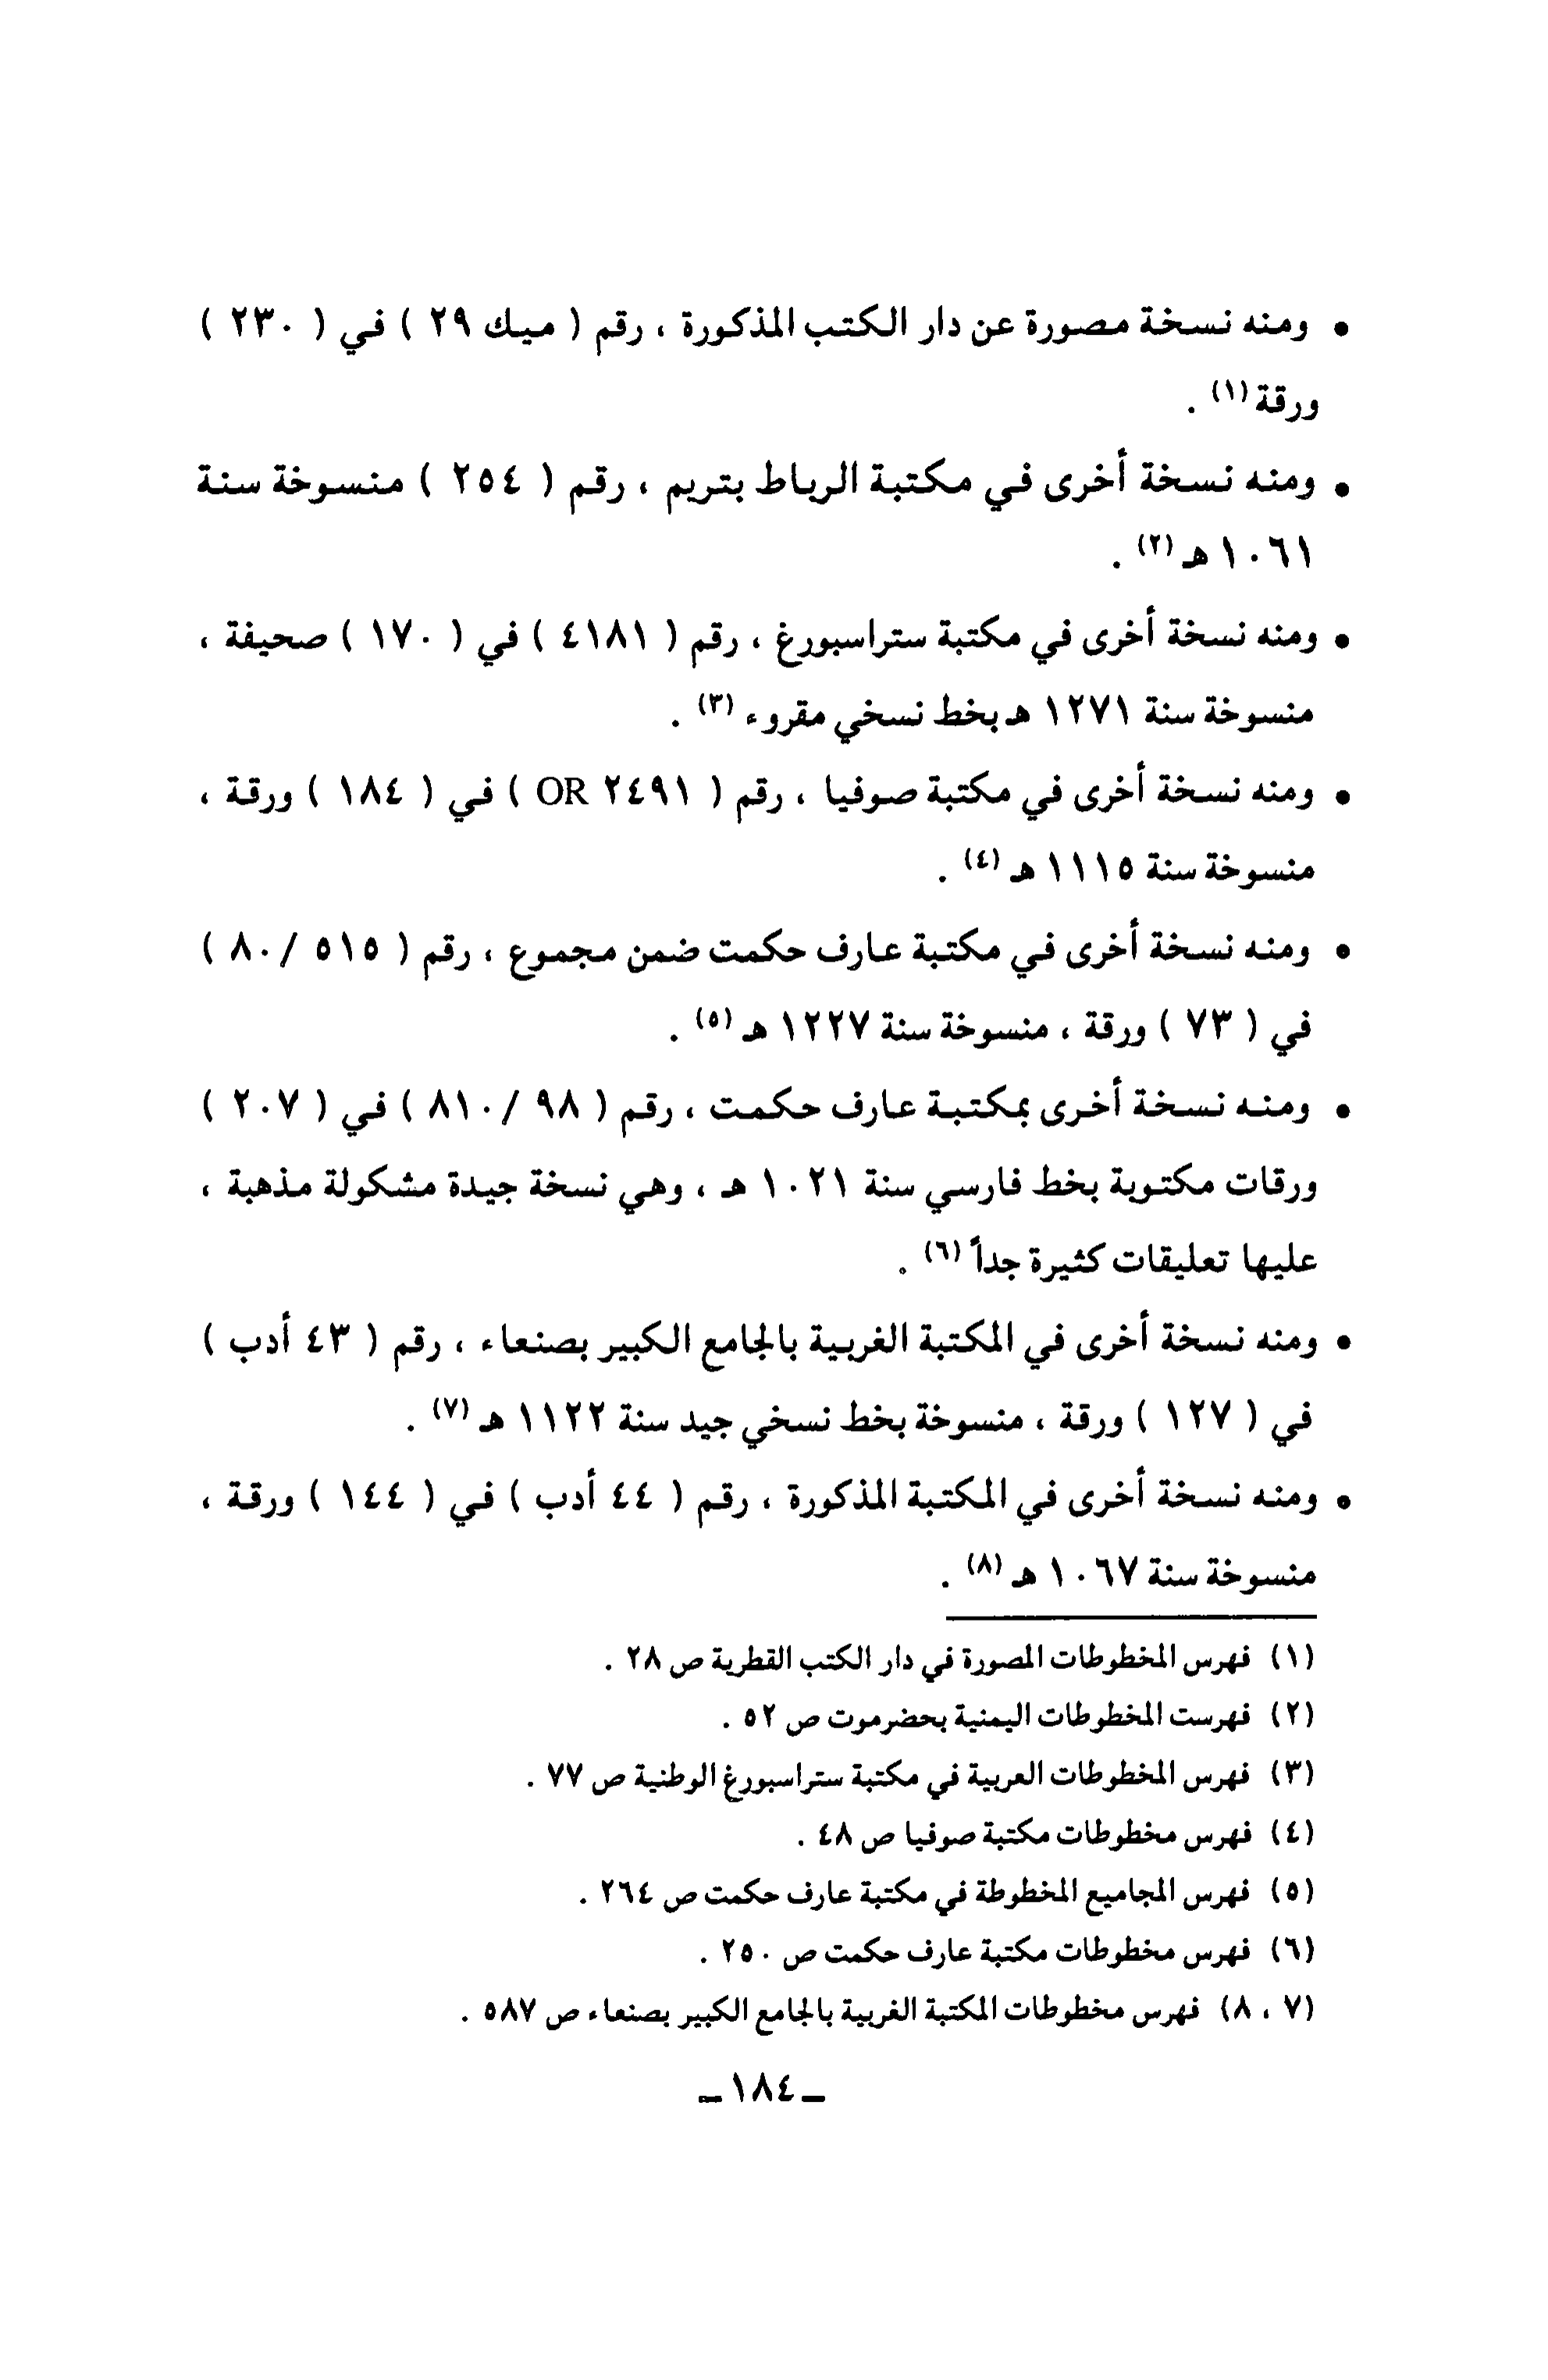 • ومنه نسخة مصورة عن دار الكتب المذكورة ، رقم ( ميك ٢٩ ) في ( ٢٣٠ )
ورقة (١) .
• ومنه نسخة أخرى في مكتبة الرباط بتريم ، رقم ( ٢٥٤ ) منسوخة سنة
١٠٦١ هـ (٢) .
• ومنه نسخة أخرى في مكتبة ستراسبورغ ، رقم ( ٤١٨١ ) في ( ١٧٠ ) صحيفة ،
منسوخة سنة ١٢٧١ هـ بخط نسخي مقروء (٣) .
• ومنه نسخة أخرى في مكتبة صوفيا ، رقم ( OR ٢٤٩١ ) في ( ١٨٤ ) ورقة ،
منسوخة سنة ١١١٥ هـ (٤) .
• ومنه نسخة أخرى في مكتبة عارف حكمت ضمن مجموع ، رقم ( ٥١٥ /٨٠ )
في ( ٧٣ ) ورقة ، منسوخة سنة ١٢٢٧ هـ (٥) .
• ومنه نسخة أخرى بمكتبة عارف حكمت ، رقم ( ٩٨ /٨١٠ ) في ( ٢٠٧ )
ورقات مكتوبة بخط فارسي سنة ١٠٢١ هـ ، وهي نسخة جيدة مشكولة مذهبة ،
عليها تعليقات كثيرة جداً (٦) .
• ومنه نسخة أخرى في المكتبة الغربية بالجامع الكبير بصنعاء ، رقم ( ٤٣ أدب )
في ( ١٢٧ ) ورقة ، منسوخة بخط نسخي جيد سنة ١١٢٢ هـ (٧) .
• ومنه نسخة أخرى في المكتبة المذكورة ، رقم ( ٤٤ أدب ) في ( ١٤٤ ) ورقة ،
منسوخة سنة ١٠٦٧ هـ (٨) .
(١) فهرس المخطوطات المصورة في دار الكتب القطرية ص ٢٨ .
(٢) فهرست المخطوطات اليمنية بحضرموت ص ٥٢ .
(٣) فهرس المخطوطات العربية في مكتبة ستراسبورغ الوطنية ص ٧٧ .
(٤) فهرس مخطوطات مكتبة صوفيا ص ٤٨ .
(٥) فهرس المجاميع المخطوطة في مكتبة عارف حكمت ص ٢٦٤ .
(٦) فهرس مخطوطات مكتبة عارف حكمت ص ٢٥٠ .
(٧ ، ٨) فهرس مخطوطات المكتبة الغربية بالجامع الكبير بصنعاء ص ٥٨٧ .
ـ ١٨٤ ـ